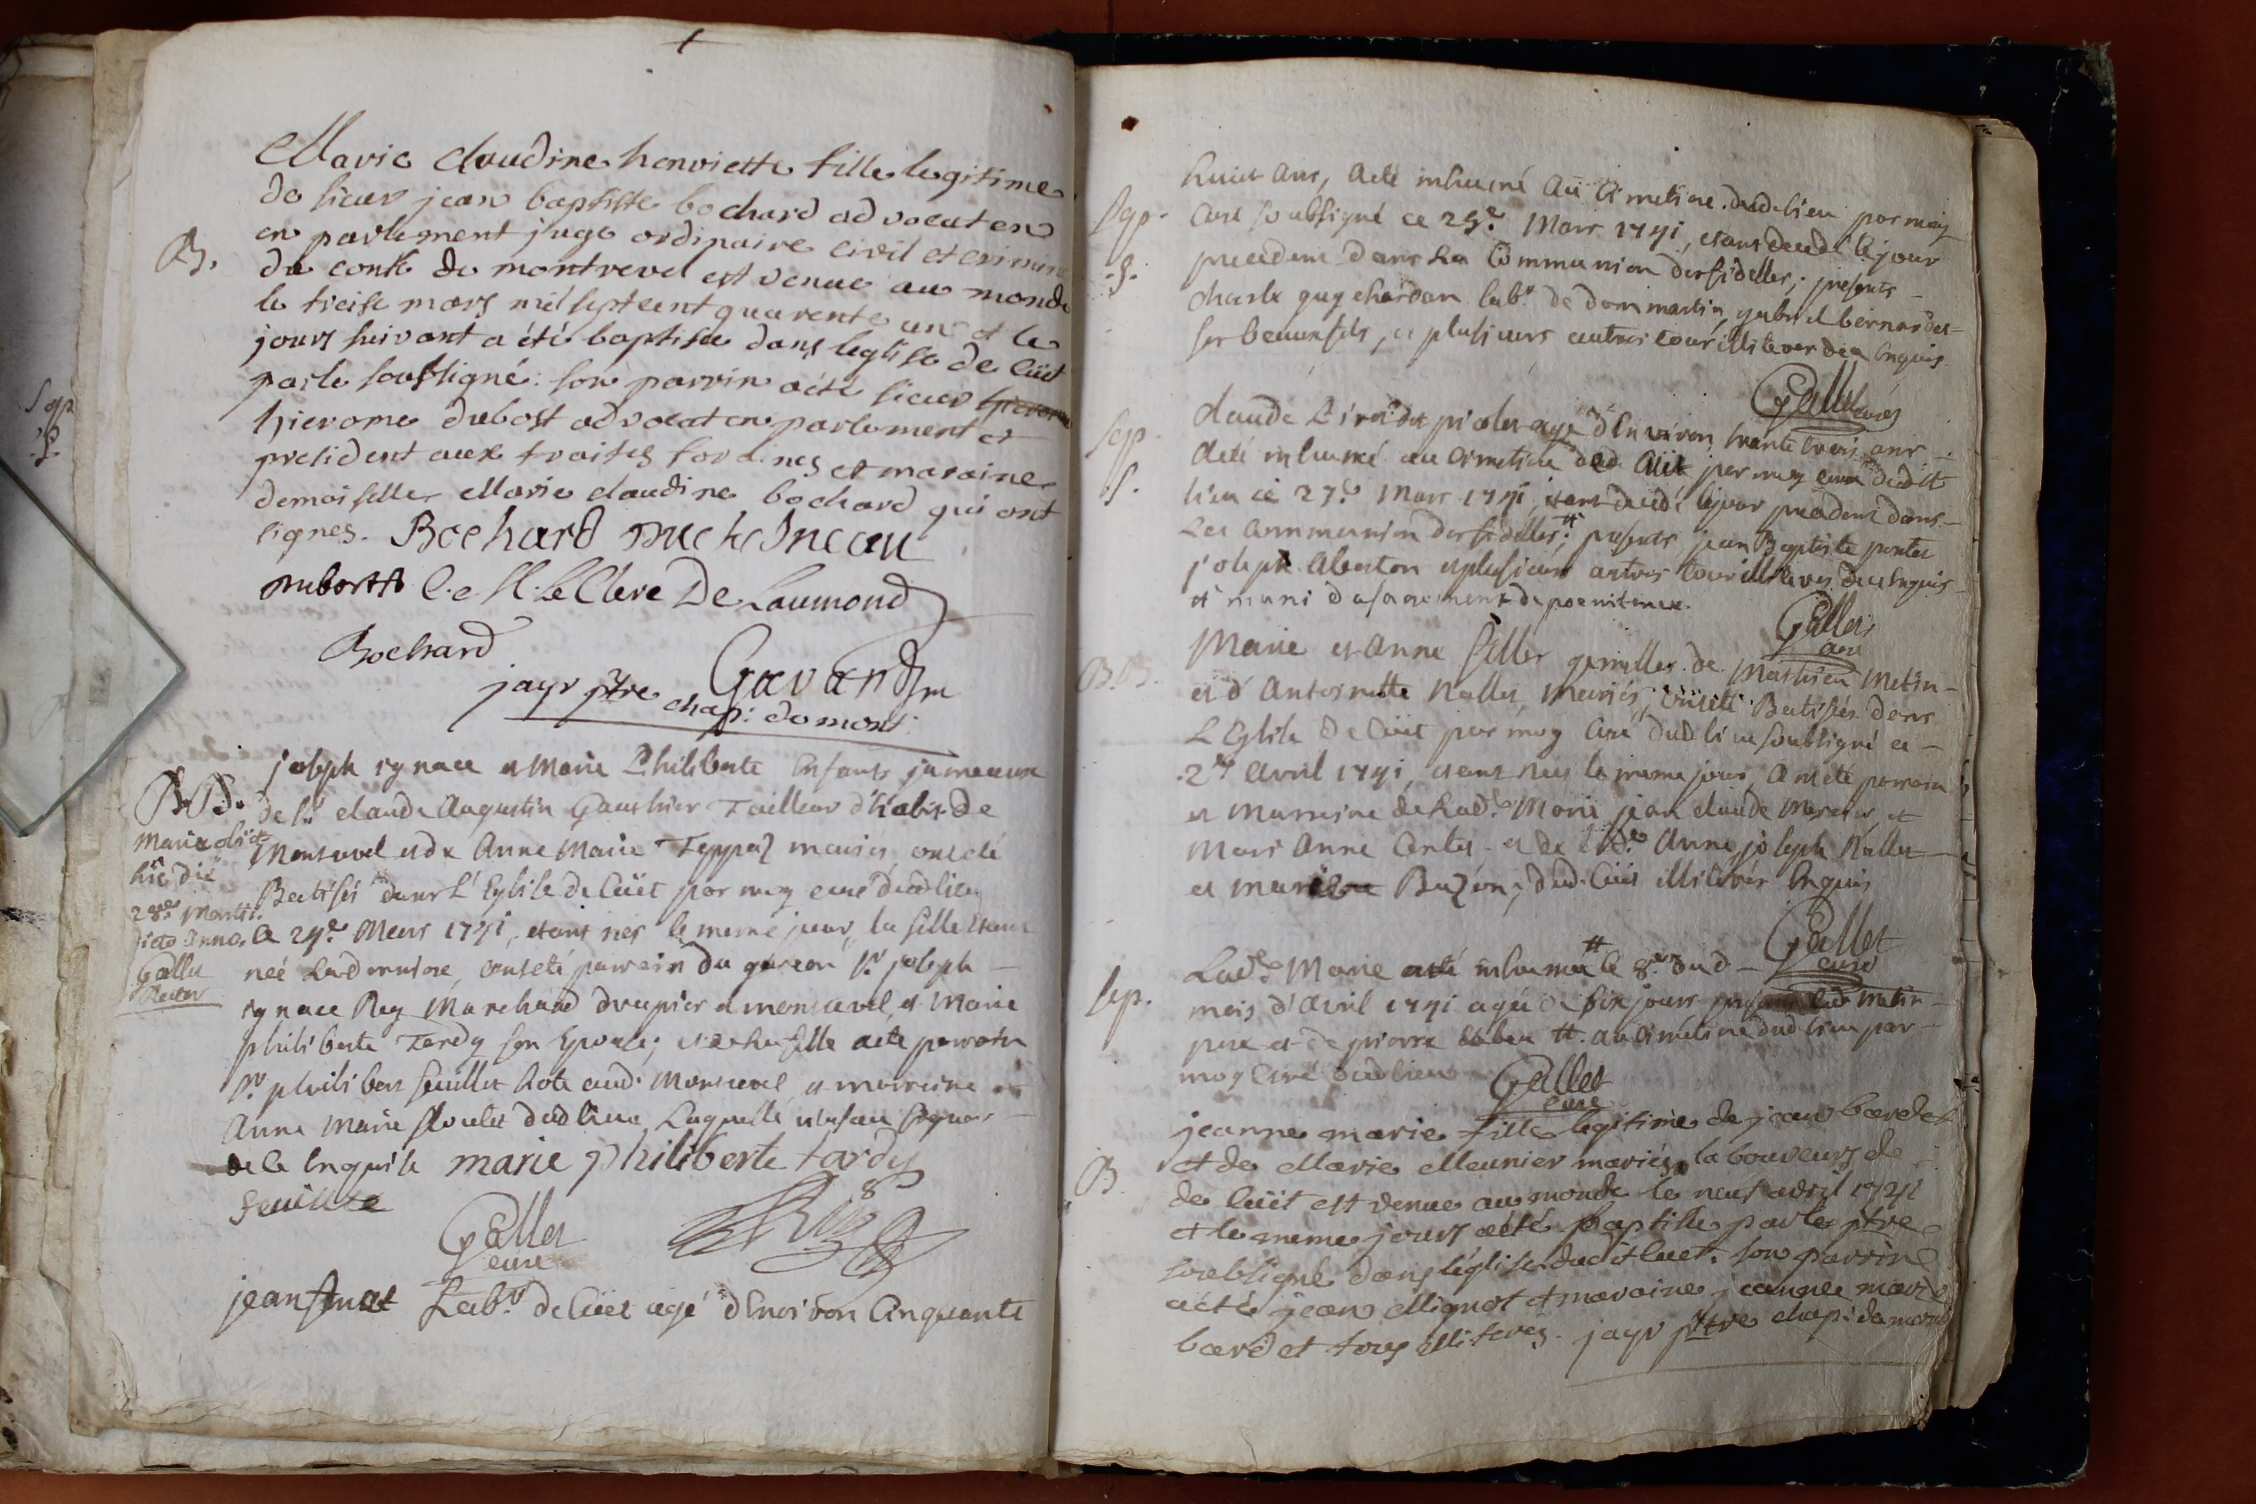 Marie claudine henriette fille legitime
de sieur jean baptiste bochard advocat en
en parlement juge ordinaire civil et crimine
B.
du conte de montrevel est venue au monde
le treise mars mil sept cent quarente un et le
jours suivant a été baptisée dans leglise de Cüet
par le soussigné: son parrin a été sieur
hierome dubost advocat en parlement et
president aux traites foraines et maraine
demoiselle Marie claudine bochard qui ont
signes. Bochard
Dubost Le Clerc De Laumond
Bochard
jayr ptre chap: de mont Gavand
B.B.
joseph ygnace et Marie Philiberte Enfants jumeaux
de Sr. claude Augustin Gauthier Tailleur d'habit de
Monrevel et de Anne Marie Teppaz mariés, ont eté
Batisés dans L'Eglise de Cüet par moy curé dud lieu
ce 24e. Mars 1741, etant nés le meme jour, la fille etant
Maria obiit
hic die
28e. Martii
dicto anno
Gallet
Rector
neé Laderniere, ont eté parrein du garcon Sr. joseph
ygnace Rey Marchand drapier a monrevel, et Marie
philiberte Tardy son Epouse; et de la fille a eté parrein
Sr. philibert feuillet hote aud. Monrevel, et marreine
Anne Marie dud lieu, Laquelle n'a sçu signer
de ce Enquise marie philiberte tardy
feuillet
Gallet
curé
Rey
jean Labr. de Cüet agé d'Environ Cinquante
huict ans, a eté inhumé au Cimetiere dud lieu par moy
Sep.
curé soubsigné ce 25e. Mars 1741, etant decedé le jour
.S.
precedent dans La Communion des fidelles; presents
charle guychardan labr. de dommartin, gabriel bernard
ses beauxfils, et plusieurs autres tous illiteres de ce Enquis
Gallet curé
Sep.
claude agé d'Environ trante trois ans
S.
a eté inhumé au Cimetiere de Cüet par moy curé dudit
lieu ce 27e. Mars 1741, etant decedé le jour precedent dans
La Communion des fidelles; # presents jean Baptiste pontet
joseph Abaston et plusieurs autres tous illiteres de ce Enquis
# muni du sacrement de poenitence.
Gallet
curé
B.B.
Marie et Anne filles gemelles de Mathieu Metin
et d'Antoinette Nallet, Mariés, ont eté Batisés dans
L'Eglise de Cüet par moy Curé dud lieu soubsigné ce
2e. Avril 1741, etant nées le meme jour, ont eté parrein
et Marreine de Lade. Marie jean claude Mercier, et
Marianne Contet et de lade. Anne, joseph Nallet
et Buzon, dud. Cüet illiteres Enquis
Gallet
curé
Sep.
Lade. Marie a eté inhumée # le 8e. dud
mois d'Avril 1741 agée de six jours presents led Metin
pere et de pierre #. au Cimetiere dud lieu par
moy curé dud lieu
Gallet
curé
B.
jeanne marie fille legitime de jean bardet
et de Marie Meunier mariés, laboureurs de
de Cüet est venue au monde le neuf avril 1741
et le meme jours a été baptisée par le ptre
soubsigné dans léglise dudit Cuet. son parrin
a été jean Mignot et maraine jeanne marie
bardet tous illiteres. jayr ptre chap: de mont